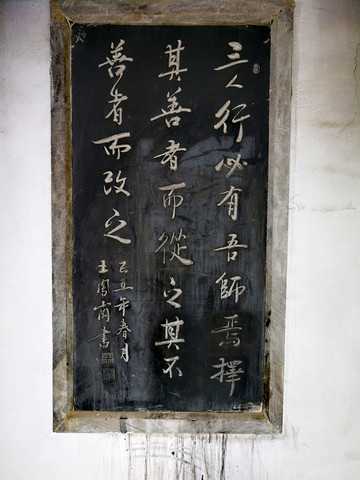 三人行必有吾師焉擇
其善者而從之其不
善者而改之
己丑年春月
王閣蘭書